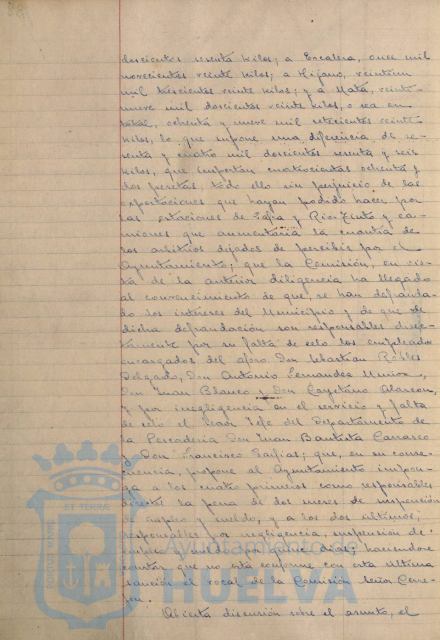 doscientos sesenta kilos; a Escalera, once mil
novecientos veinte kilos; a Hijano, veintiun
mil trescientos veinte kilos; y a Mata, veinti-
nueve mil doscientos veinte kilos, o sea en
total, ochenta y nueve mil setecientos veinte
kilos, lo que supone una diferencia de se-
senta y cuatro mil doscientos sesenta y seis
kilos, que importan cuatrocientas ochenta y
dos pesetas, todo ello sin perjuicio de las
exportaciones que hayan podido hacer por
las estaciones de Zafra y Rio-Tinto y ca-
miones que aumentaria la cuantia de
los arbitrios dejados de percibir por el
Ayuntamiento; que la Comisión, en vis-
ta de la anterior diligencia ha llegado
al convencimiento de que, se han defrauda-
do los intereses del Municipio y de que de
dicha defraudación son responsables direc-
tamente por su falta de celo los empleados
encargados del aforo, Don Sebastian Robles
Delgado, Don Antonio Fernandez Muñoz,
Don Juan Blanco y Don Cayetano Alarcon,
y por inegligencia en el servicio y falta
de celo el Señor Jefe del Departamento de
la Pescaderia Don Juan Bautista Carrasco
y Don Francisco Garfias; que, en su conse-
cuencia, propone al Ayuntamiento impon-
ga a los cuatro primeros como responsables
directos la pena de dos meses de suspensión
de empleo y sueldo, y a los dos últimos,
responsables por negligencia, suspensión de
empleo y sueldo por quince dias; haciendose
constar que no está conforme con esta última
sanción el vocal de la Comisión señor
Abierta discusión sobre el asunto, el
PORTUS MARIS
ET TERRÆ
Ayuntamiento de
HUELVA